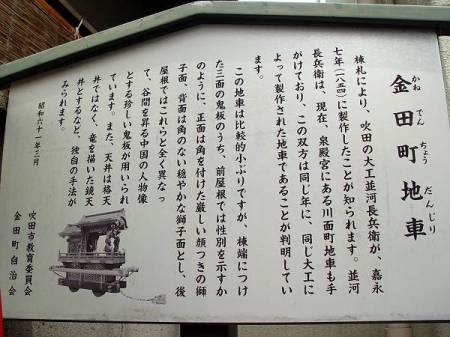 金田町地車
かね でん ちょう だんじり
棟札により、吹田の大工並河長兵衛が、嘉永
七年(一八五四)に製作したことが知られます。並河
長兵衛は、現在、泉殿宮にある川面町地車も手
がけており、この双方は同じ年に、同じ大工に
よって製作された地車であることが判明してい
ます。
この地車は比較的小ぶりですが、棟端につけ
た三面の鬼板のうち、前屋根では性別を示すか
のように、正面は角を付けた厳しい顔つきの獅
子面、背面は角のない穏やかな獅子面とし、後
屋根ではこれらと全く異なっ
て、谷間を昇る中国の人物像
とする珍しい鬼板が用いられ
ています。また、天井は格天
井ではなく、竜を描いた鏡天
井とするなど、独自の手法が
みられます。
昭和六十一年三月
吹田市教育委員会
金田町自治会